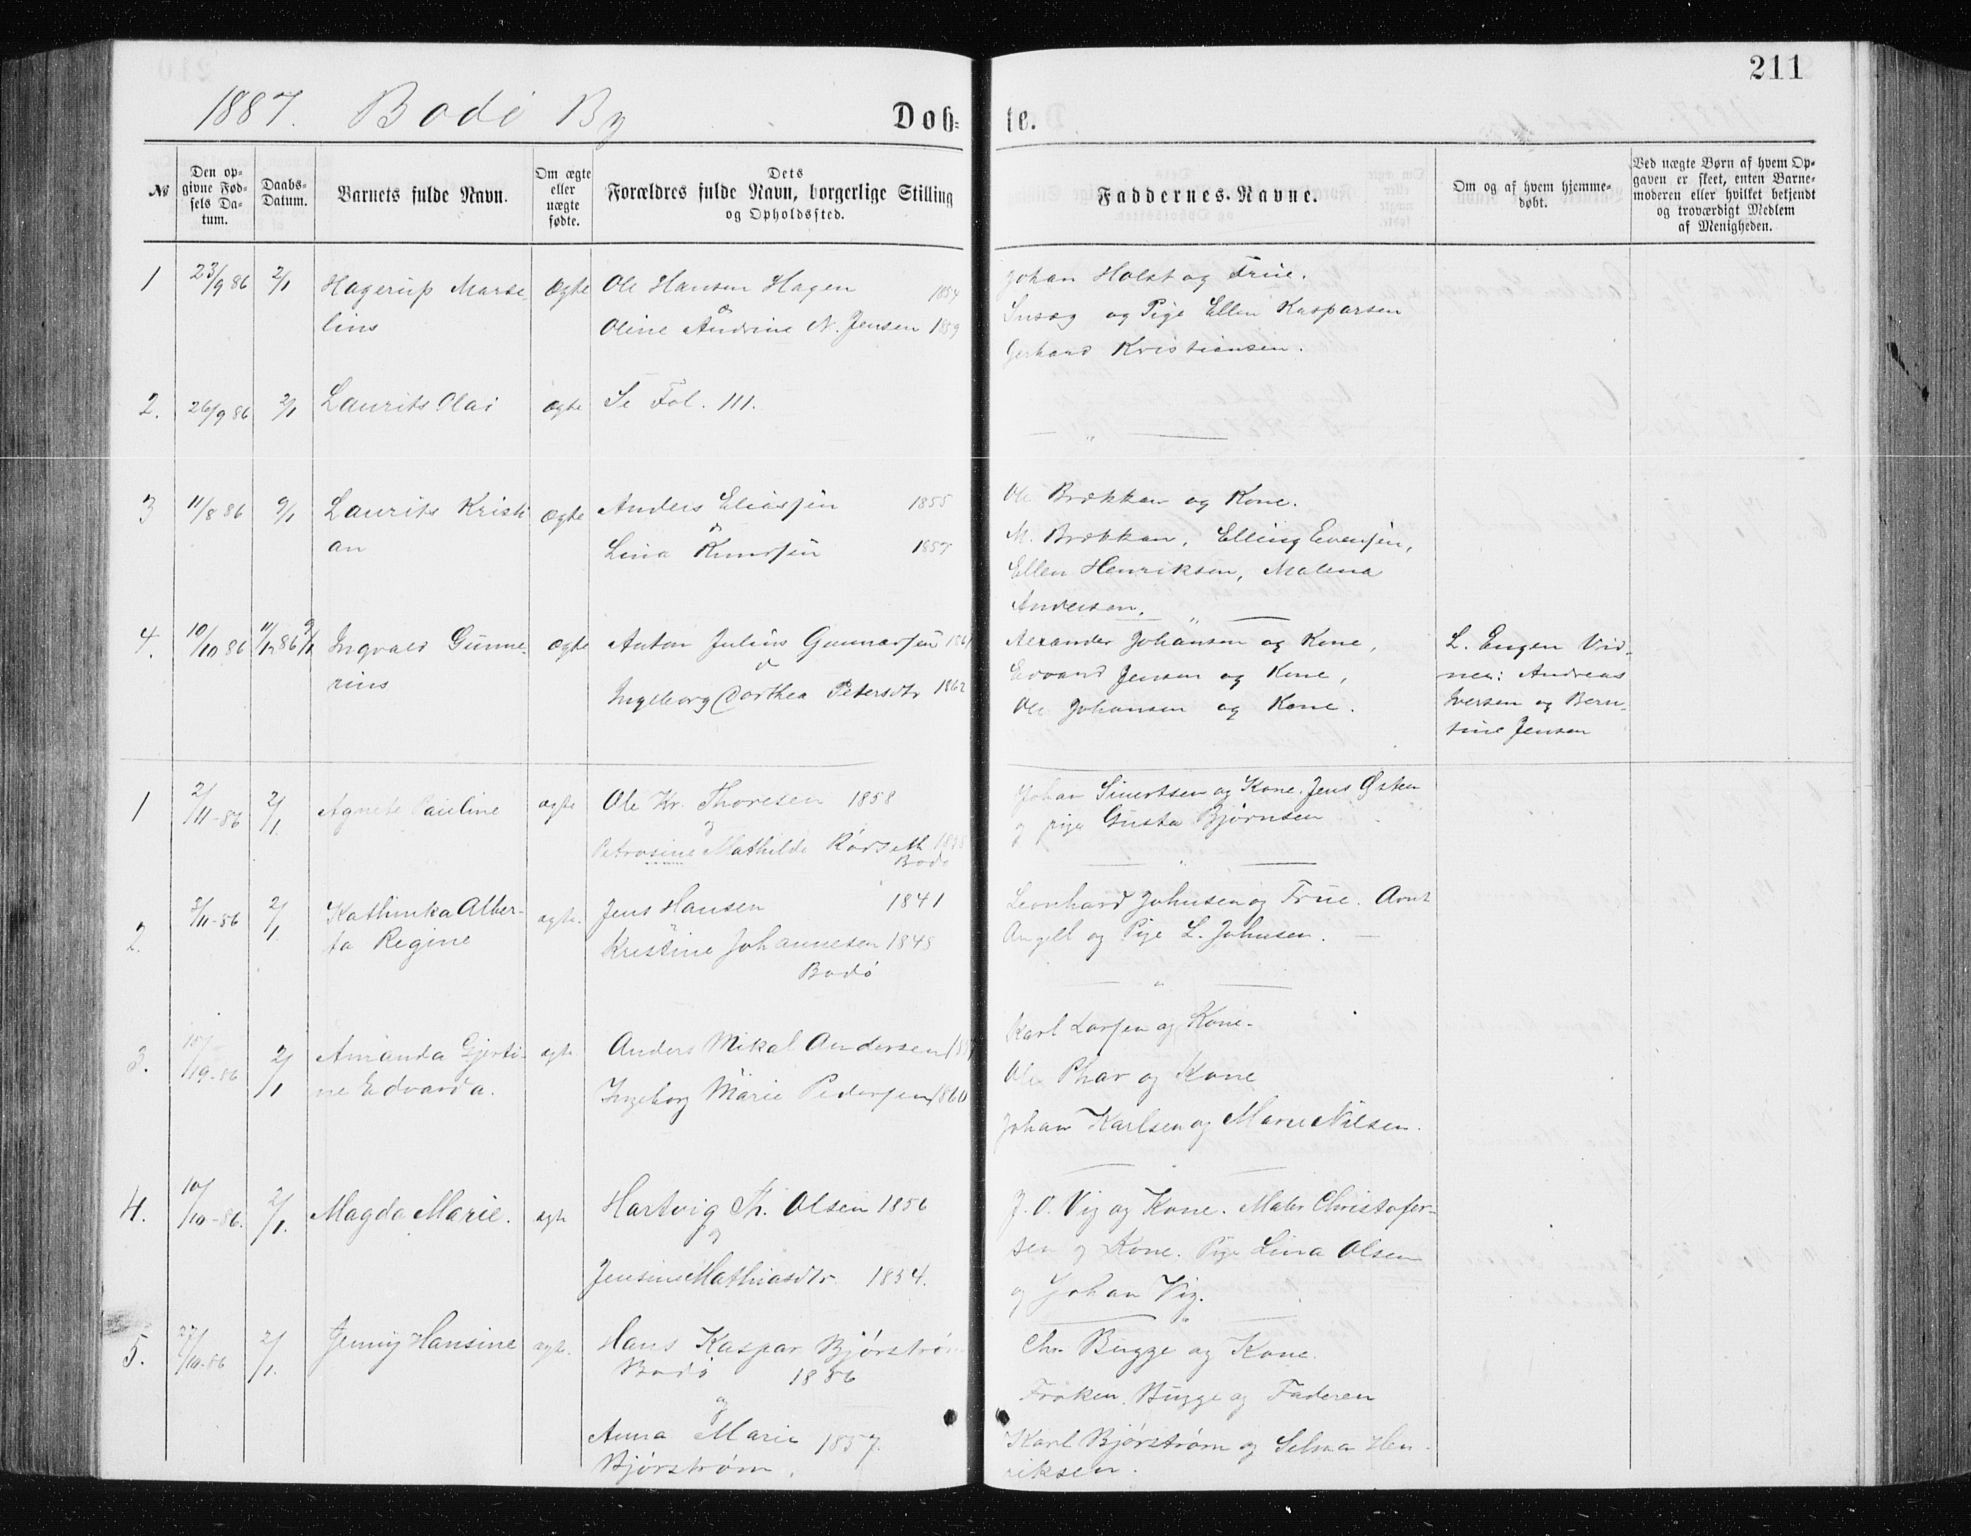 211
1887. Bodø By
Døb-
te.
№
Den op-
givne Fød-
sels Da-
tum.
Daabs-
Datum.
Barnets fulde Navn.
Om ægte
eller
uægte
fødte.
Dets
Forældres fulde Navn, borgerlige Stilling
og Opholdssted.
Faddernes Navne.
Om og af hvem hjemme-
døbt.
Ved uægte Børn af hvem Op-
gaven er skeet, enten Barne-
moderen eller hvilket bekjendt
og troværdigt Medlem
af Menigheden.
1 23/9 86 2/1 Hagerup Marse- Ægte Ole Hansen Hagen 1854 Johan Holst og Frue.
lius Oline Andrine N. Jensen 1859 og Pige Ellen Kasparsen
Gerhard Kristiansen.
2. 26/9 86 2/1 Laurits Olai Ægte Se Fol. 111.
3 11/8 86 9/1 Laurits Kristi Ægte Anders Eliassen 1855 Ole Brækkan og Kone.
an Lina Knudsen 1857 M. Brækkan, Elling Evensen,
Ellen Henriksen, Malena
Andersen.
4. 10/10 86 11/12 86 9/1 Ingvald Gunne- Ægte Anton Julius Gunnarsen Alexander Johansen og Kone, L. Engen Vid-
rius Ingeborg Dorthea Petersdtr 1862 Edvard Jensen og Kone, nes: Andreas
Ole Johansen og Kone. Iversen og Bern-
tine Jensen
1 2/11-86 2/1 Agnete Pauline ægte Ole Kr. Thoresen 1858 Johan Sivertsen og Kone. Jens Østen
og Petrosine Mathilde Rørseth og pige Gusta Bjørnsen
Bodø
2. 3/11-86 2/1. Kathinka Alber- ægte. Jens Hansen 1841 Leonhard Johnsen og Frue. Arnt
ta Regine Kristine Johannesen 1845 Angell og Pige L. Johnsen.
Bodø
3. 10/10-86 2/1 Amanda Gjerti- ægte Anders Mikal Andersen Karl Larsen og Kone.
ne Edvarda. Ingeborg Marie Pedersen 1860 Ole Phar og Kone
Johan Karlsen og Marie Nilsen.
4. 10/10-86. 2/1. Magda Marie. ægte Hartvig Th. Olsen 1856 J. O. Vig og Kone. Mater Christofer-
og sen og Kone. Pige Lina Olsen
Jensine Mathiasdtr. 1854. og Johan Vig.
5. 27/10-86 2/1. Jenny Hansine ægte. Hans Kaspar Bjørstrøm Chr. Bugge og Kone.
Bodø 1856 Frøken Bugge og Faderen
og
Anna Marie 1857. Karl Bjørstrøm og Selma Hen-
Bjørstrøm. riksen.